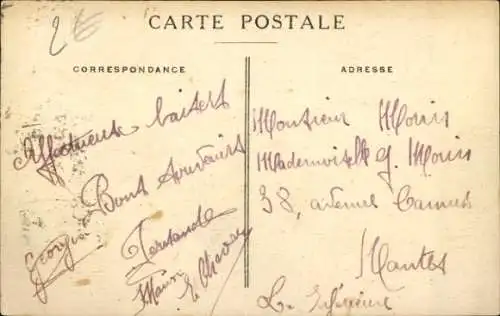 2€
CARTE POSTALE
CORRESPONDANCE
Affectueux baisers
Bons souvenirs
Georges
Fernande
ADRESSE
Monsieur Moris
Mademoiselle G. Moris
38, avenue Camus
Nantes
L. Inférieure